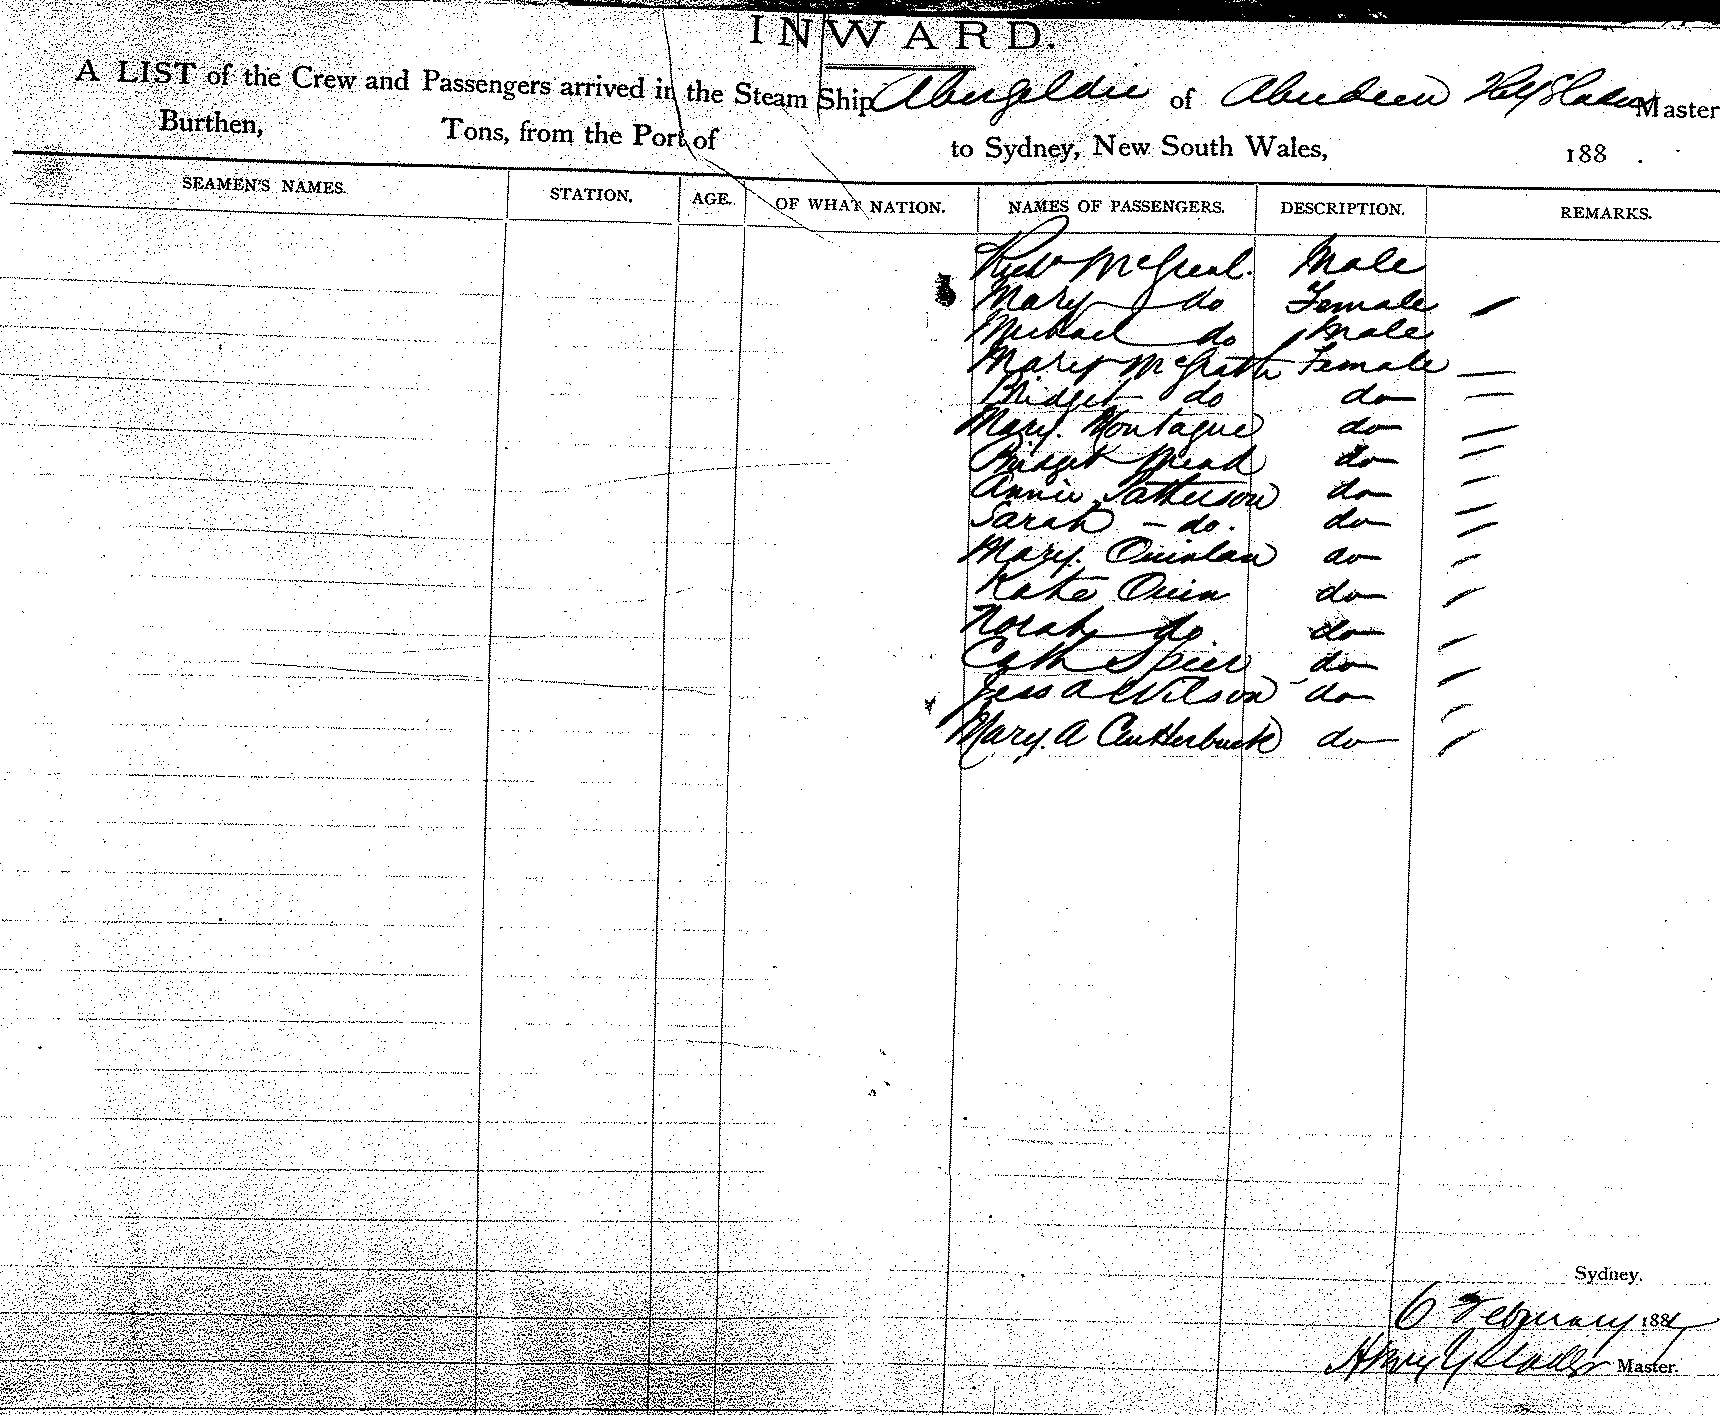 INWARD.
A LIST of the Crew and Passengers arrived in the Steam Ship Abergeldie of Aberdeen Master
Burthen, Tons, from the Port of to Sydney, New South Wales, 188 .
SEAMEN'S NAMES. STATION. AGE. OF WHAT NATION. NAMES OF PASSENGERS. DESCRIPTION. REMARKS.
McGreal. Male
Mary do Female
Michael do Male
Mary McGrath Female —
Bridget do do —
Mary. Montague do
Bridget Mead do
Annie Patterson do
Sarah - do. do
Mary. Quinlan do
Kate Quin do
Norah do. do
Cath Spier do
Jess A Wilson do
Mary. A Clutterbuck do
Sydney.
6 February 1884
Henry Master.